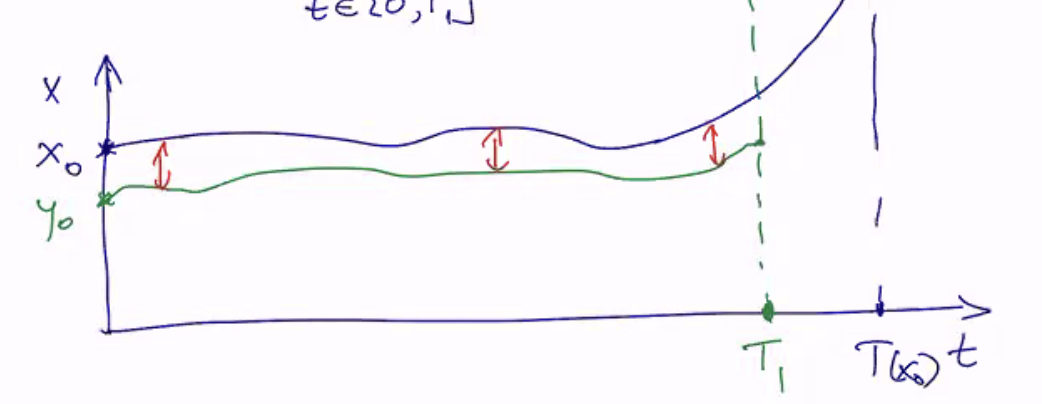 t ∈ [0, T₁]
x
x₀
y₀
T₁ T(x₀) t